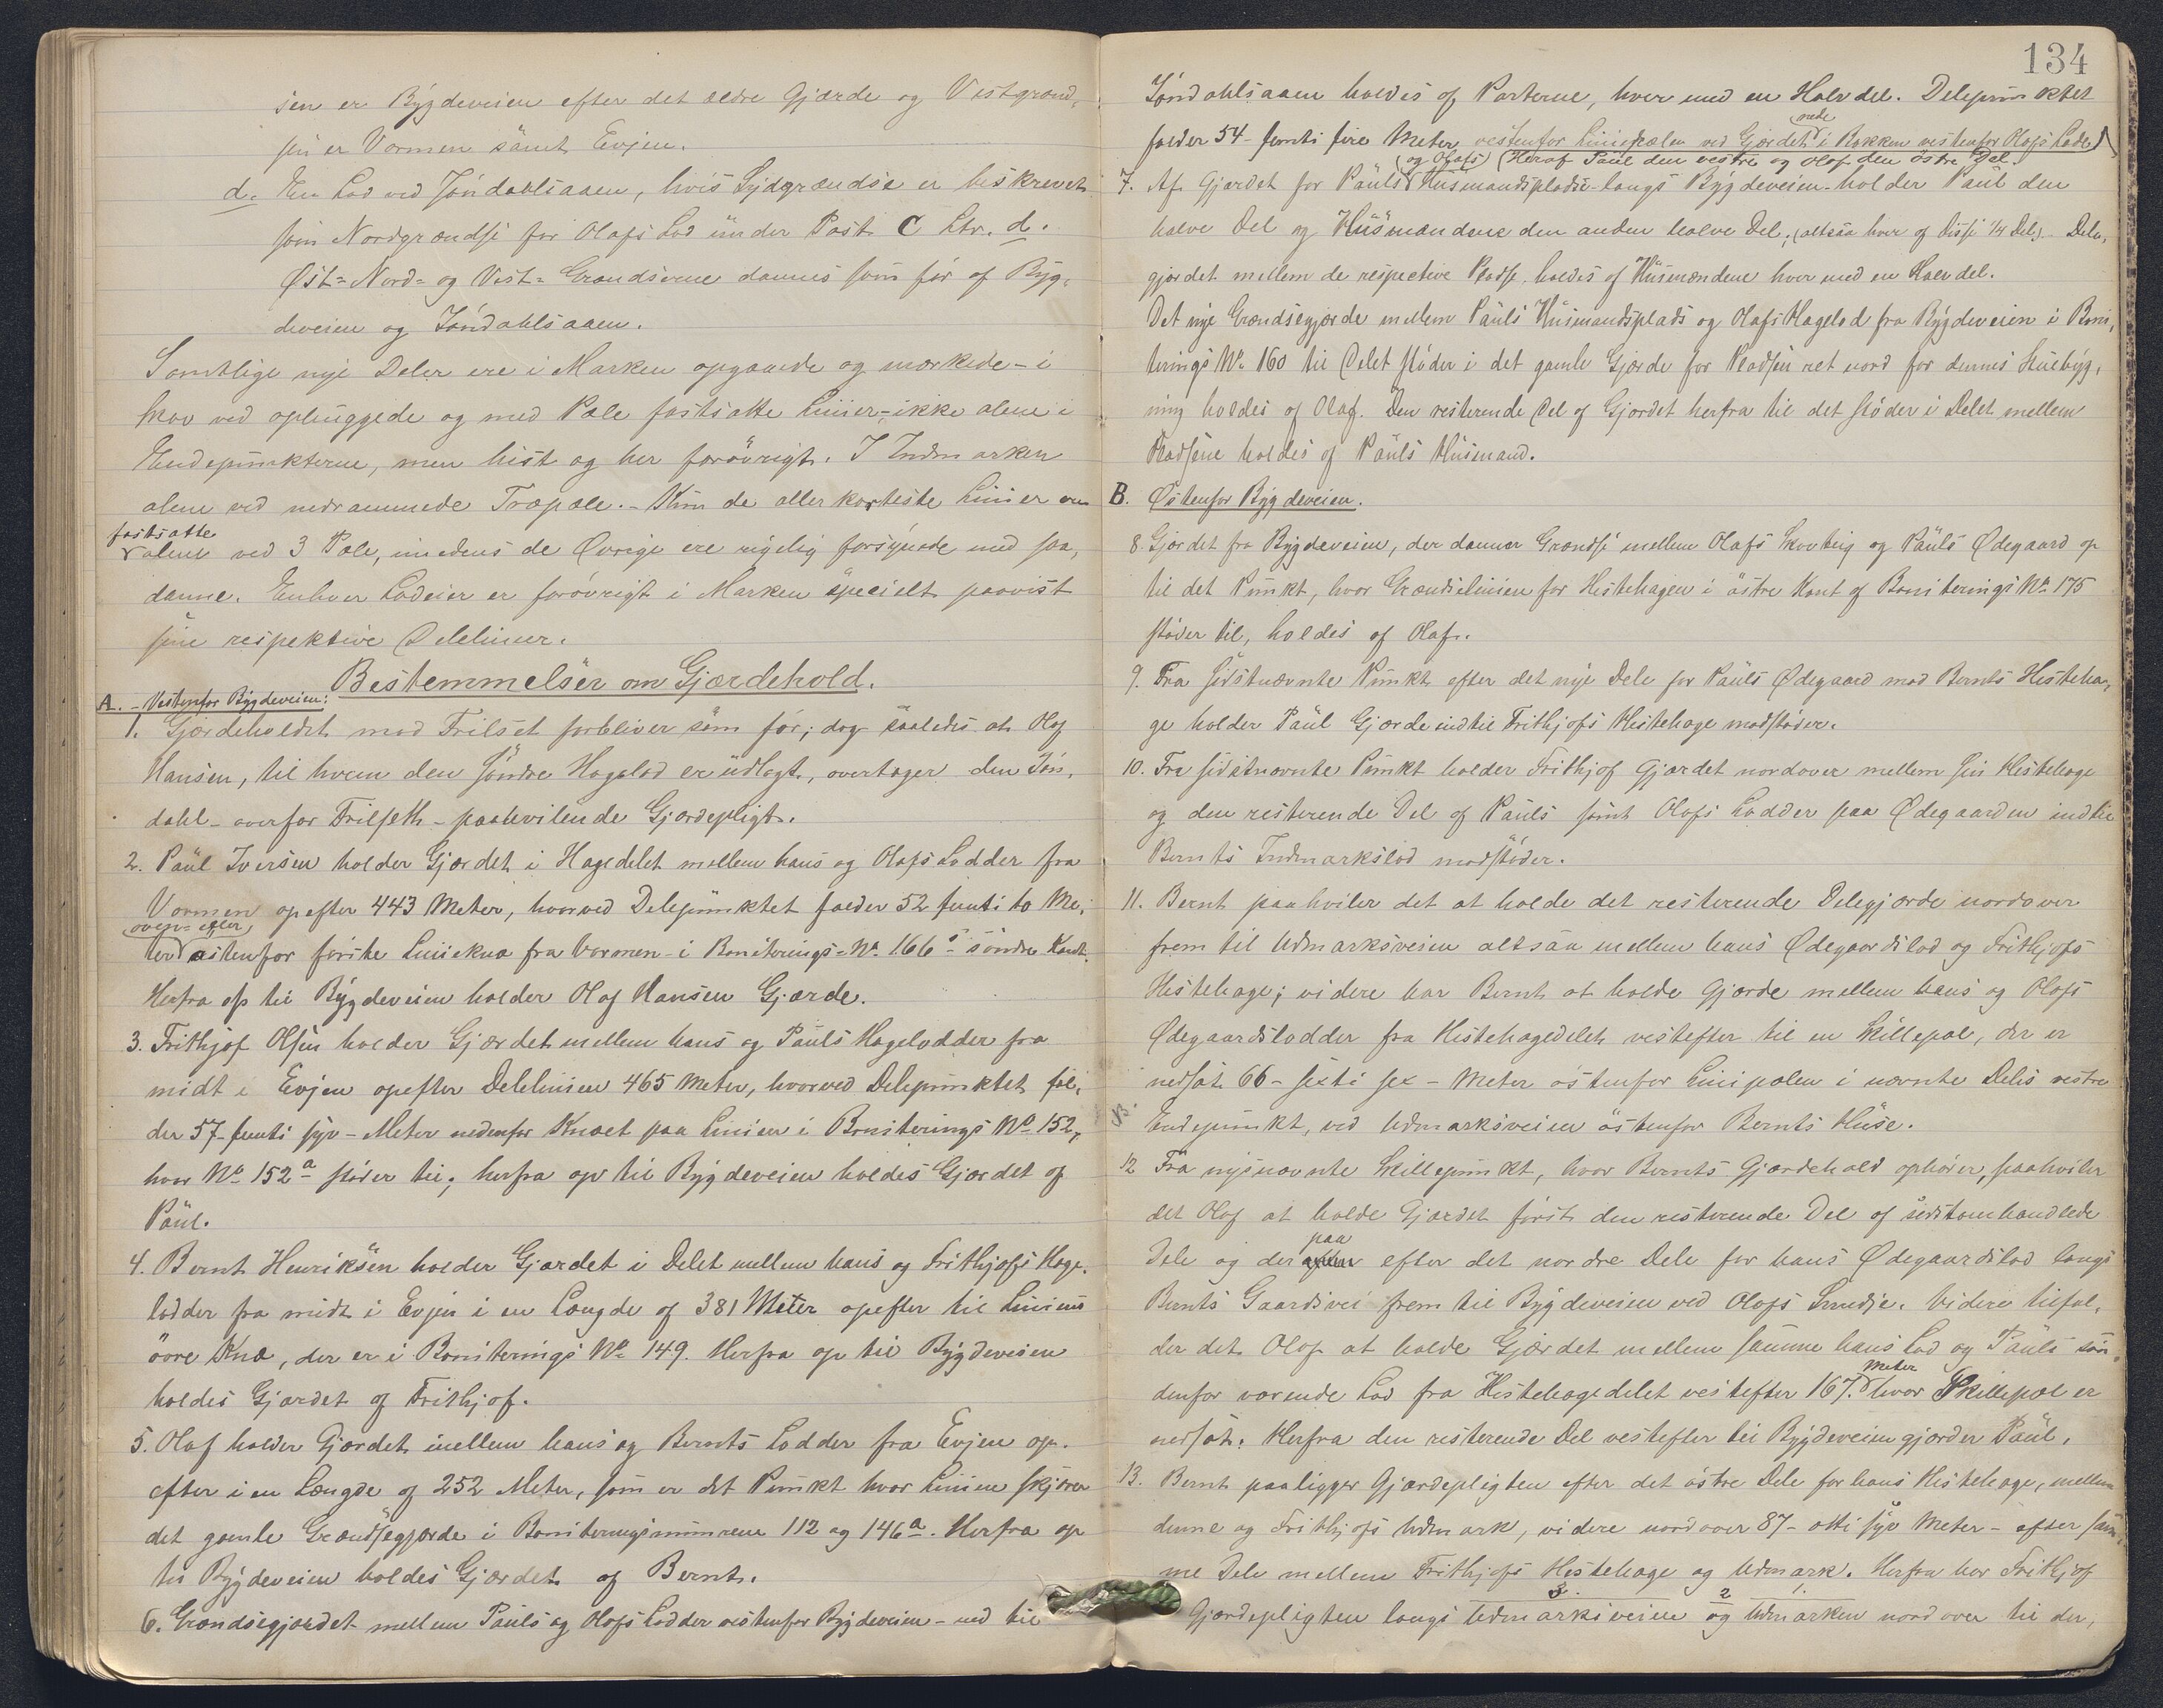 sen er Bygdeveien efter det ældre Gjærde og Vestgrænd,
sen er Vormen samt Evjen.
d. En Lod ved Jóndahlsaaen, hvis Sydgrændse er beskrevet
som Nordgrændse for Olafs Lod under Post C Ltr. d.
Øst- Nord- og Vest- Grændserne dannes som før af Byg,
deveien og Jóndahlsaaen.
Samtlige nye Deler ere i Marken opgaaede og mærkede - i
Skov ved ophuggede og med Pæle fastsatte Linier - ikke alene i
Endepunkterne, men hist og her forøvrigt. I Indmarken
alene ved nedrammede Træpæle. - Kun de allerkorteste Linier ere
fastsatte
alene ved 3 Pæle, imedens de Øvrige ere rigelig forsynede med saa,
danne. Enhver Lodeier er forøvrigt i Marken specielt paavist
sine respektive Delelinier.
Bestemmelser om Gjærdehold.
A. - Vestenfor Bygdeveien:
1. Gjærdeholdet mod Frilset forbliver som før; dog saaledes at Olaf
Hansen, til hvem den søndre Hagelod er udlagt, overtager den Jón,
dahl - overfor Frilseth - paahvilende Gjærdepligt.
2. Paul Iversen holder Gjærdet i Hagedelet mellem hans og Olafs Lodder fra
Vormen opefter 443 Meter, hvorved Delepunktet falder 52 femti to Me,
oven- eller
ter østenfor første Linieknæ fra Vormen - i Boniterings-No. 166 s søndre Kant.
Herfra op til Bygdeveien holder Olaf Hansen Gjærde.
3. Frithjof Olsen holder Gjærdet mellem hans og Pauls Hagelodder fra
midt i Evjen opefter Delelinien 465 Meter, hvorved Delepunktet fal,
der 57 - femti syv - Meter nedenfor Knæet paa Linien i Boniterings No 152,
hvor No 152 a støder til; herfra op til Bygdeveien holdes Gjærdet af
Paul.
4. Bernt Henriksen holder Gjærdet i Delet mellem hans og Frithjofs Hage,
lodder fra midt i Evjen i en Længde af 381 Meter opefter til Liniens
øvre Knæ, der er i Boniterings No 149. Herfra op til Bygdeveien
holdes Gjærdet af Frithjof.
5. Olaf holder Gjærdet mellem hans og Bernts Lodder fra Evjen op,
efter i en Længde af 252 Meter, som er det Punkt hvor Linien skjærer
det gamle Grændsegjærde i Boniteringsnumrene 112 og 146 a. Herfra op
til Bygdeveien holdes Gjærdet af Bernt.
6. Grændsegjærdet mellem Pauls og Olafs Lodder vestenfor Bygdeveien - ned til
134
Jóndahlsaaen holdes af Parterne, hver med en Halvdel. Delepunktet
nede
falder 54 - femti fire Meter vestenfor Liniepælen ved Gjærdet i Bakken vestenfor Olafs Lade)
(og Olafs) (Heraf Paul den vestre og Olaf den østre Del.
7. Af Gjærdet for Pauls Husmandspladse - langs Bygdeveien - holder Paul den
halve Del og Husmændene den anden halve Del; (altsaa hver af disse 1/4 Del). Dele,
gjærdet mellem de respective Pladse holdes af Husmændene hver med en Halvdel.
Det nye Grændsegjærde mellem Pauls Husmandsplads og Olafs Hagelod fra Bygdeveien i Boni,
terings No. 160 til Delet støder i det gamle Gjærde for Pladsen ret nord for dennes Stuebyg,
ning holdes af Olaf. Den resterende Del af Gjærdet herfra til det støder i Delet mellem
Pladsene holdes af Pauls Husmand.
B. Østenfor Bygdeveien.
8. Gjærdet fra Bygdeveien, der danner Grændse mellem Olafs Skovteig og Pauls Ødegaard op
til det Punkt, hvor Grændselinien for Hestehagen i østre Kant af Boniterings No 175
støder til, holdes af Olaf.
9. Fra sidstnævnte Punkt efter det nye Dele for Pauls Ødegaard mod Bernts Hesteha,
ge holder Paul Gjærde indtil Frithjofs Hestehage modstøder.
10. Fra sidstnævnte Punkt holder Frithjof Gjærdet nordover mellem sin Hestehage
og den resterende Del af Pauls samt Olafs Lodder paa Ødegaarden indtil
Bernts Indmarkslod modstøder.
11. Bernt paahviler det at holde det resterende Delegjærde nordover
frem til Udmarksveien altsaa mellem hans Ødegaardslod og Frithjofs
Hestehage; videre har Bernt at holde Gjærde mellem hans og Olafs
Ødegaardslodder fra Hestehagedelet vestefter til en Skillepæl, der er
nedsat 66 - sexti sex - Meter østenfor Liniepælen i nævnte Deles vestre
Endepunkt, ved Udmarksveien østenfor Bernts Huse.
12 Fra nysnævnte Skillepunkt, hvor Bernts Gjærdehold ophører, paahviler
det Olaf at holde Gjærdet først den resterende Del af sidstomhandlede
paa
Dele og der efter det nordre Dele for hans Ødegaardslod langs
Bernts Gaardsvei frem til Bygdeveien ved Olafs Smedje. Videre tilfal,
der det Olaf at holde Gjærdet mellem samme hans Lod og Pauls søn,
Meter
denfor værende Lod fra Hestehagedelet vestefter 167. hvor Skillepæl er
nedsat. Herfra den resterende Del vestefter til Bygdeveien gjærder Paul.
13. Bernt paaligger Gjærdepligten efter det østre Dele for hans Hestehage, mellem
denne og Frithjofs Udmark, videre nordover 87 - otti syv Meter - efter sam,
me Dele mellem Frithjofs Hestehage og Udmark. Herfra har Frithjof
3. 2 1.
Gjærdepligten langs Udmarksveien og Udmarken nordover til den,